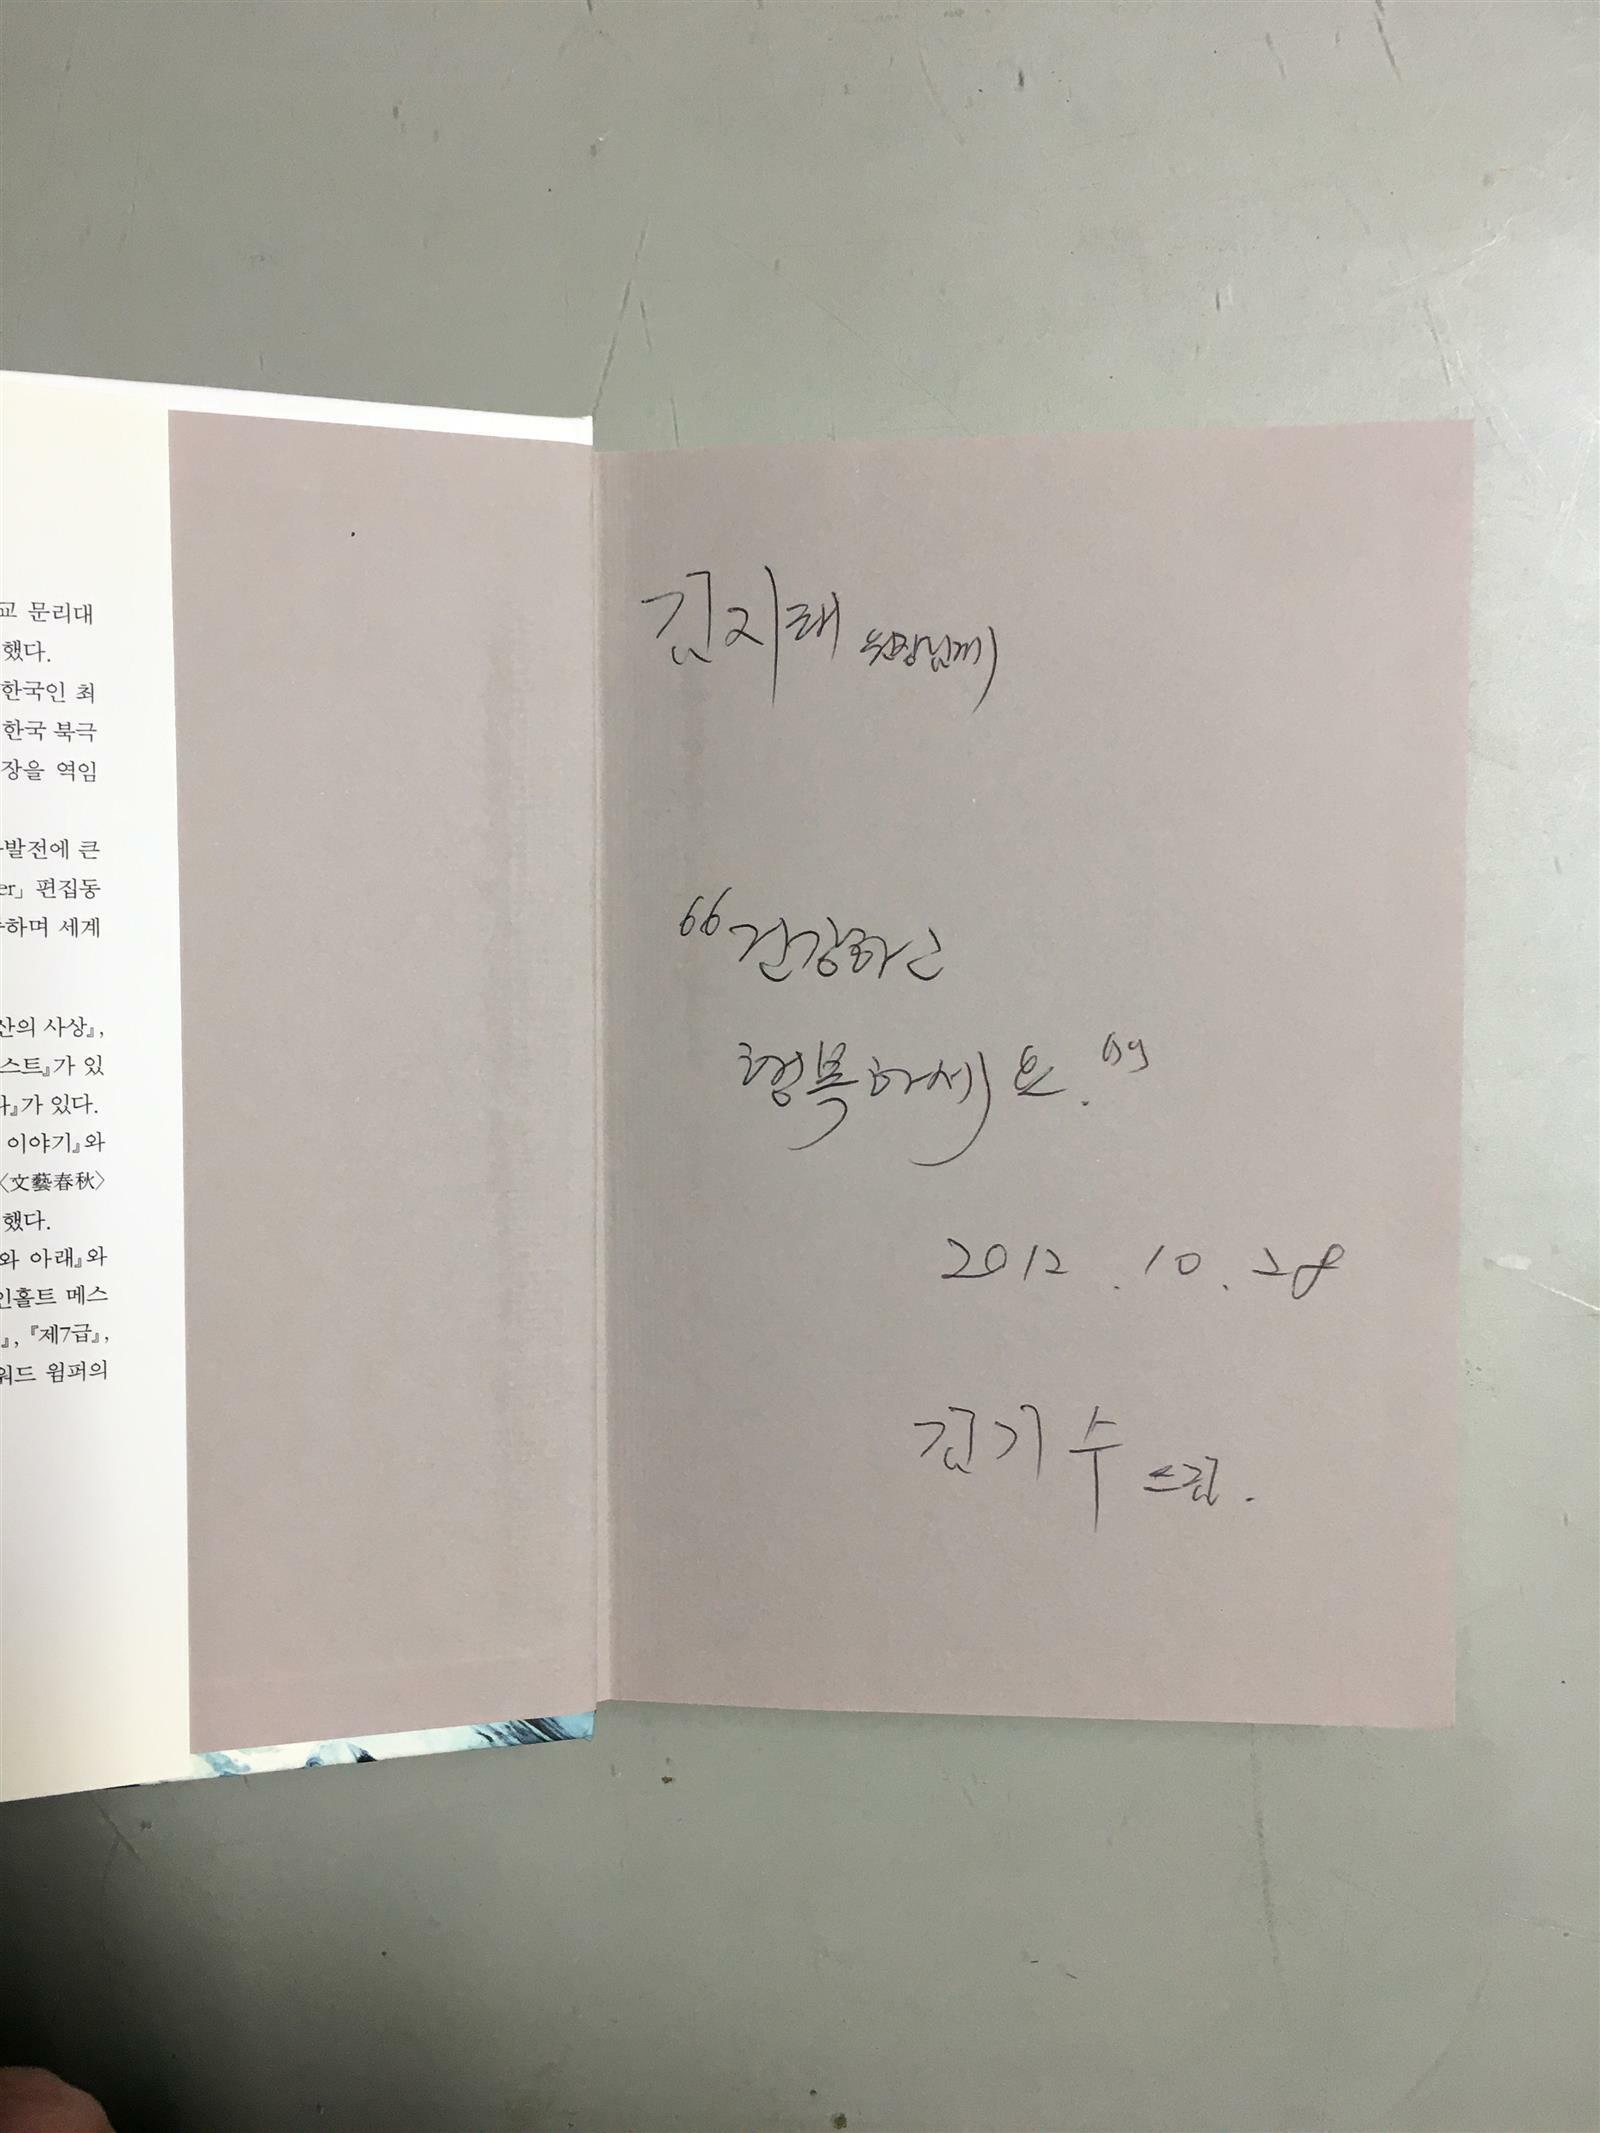 교 문리대
했다.
한국인 최
한국 북극
장을 역임
발전에 큰
er」 편집동
하며 세계
산의 사상』,
스트』가 있
』가 있다.
이야기』와
〈文藝春秋〉
했다.
와 아래』와
인홀트 메스
』, 『제7급』,
워드 윔퍼의
김지태 원장님께
“건강하고
행복하세요.”
2012. 10. 28
김기수 드림.